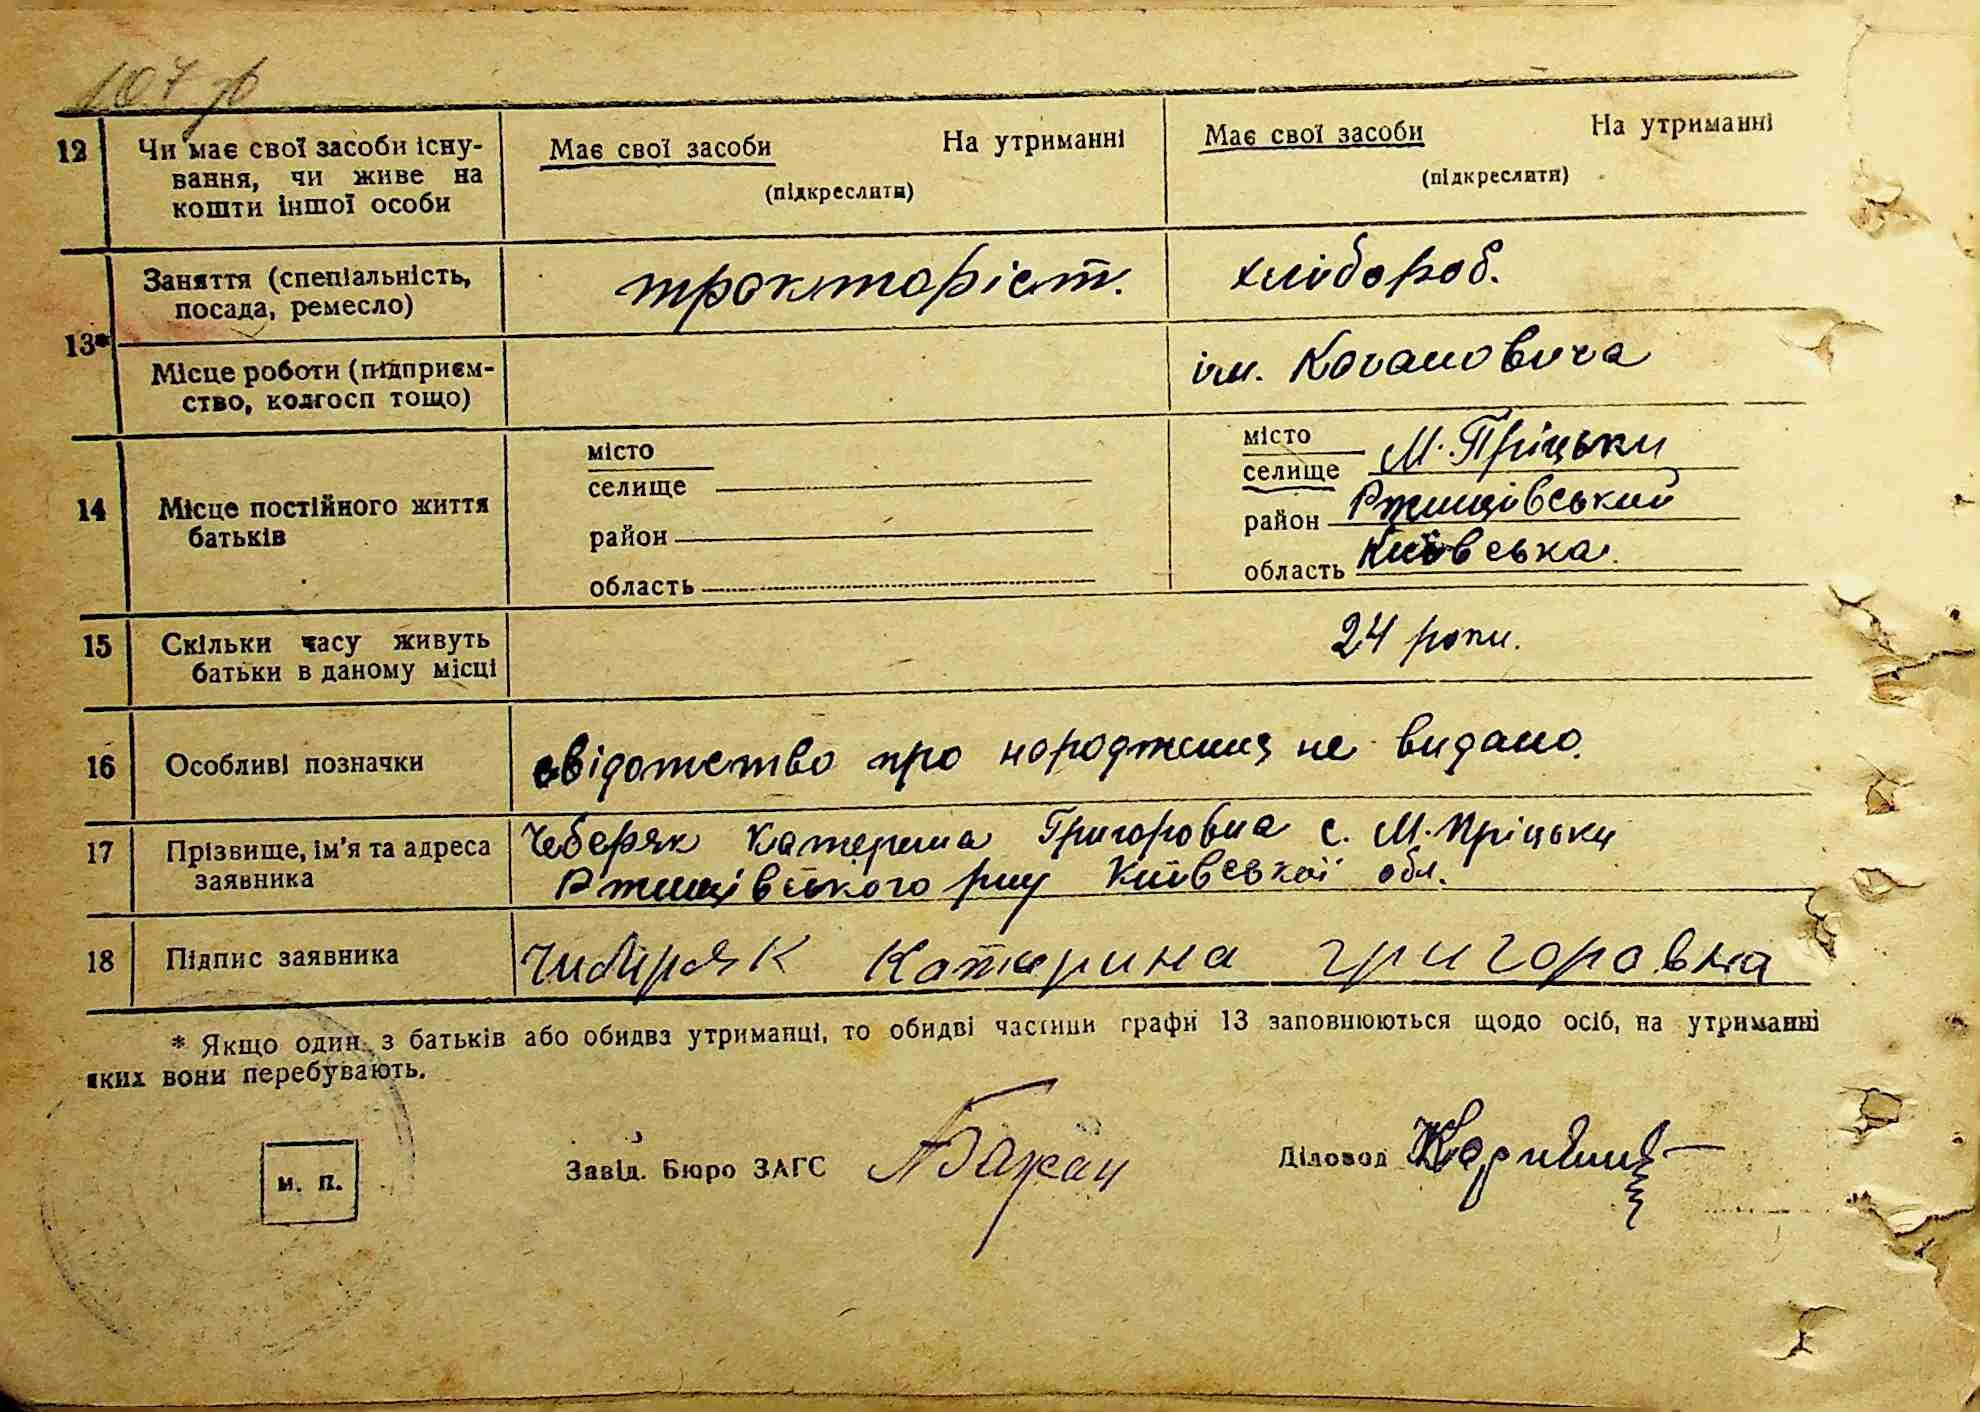 107 зв
12 Чи має свої засоби існу-
вання, чи живе на
кошти іншої особи
Має свої засоби На утриманні
(підкреслити)
Має свої засоби На утриманні
(підкреслити)
13*
Заняття (спеціальність,
посада, ремесло)
тракторіст.
хлібороб.
Місце роботи (підприєм-
ство, колгосп тощо)
ім. Кагановича
14 Місце постійного життя
батьків
місто
селище
район
область
місто
селище М. Пріцьки
район Ржищівський
область Київська.
15 Скільки часу живуть
батьки в даному місці
24 роки.
16 Особливі позначки
свідотство про народження не видано.
17 Прізвище, ім'я та адреса
заявника
Чеберяк Катерина Григоровна с. М. Пріцьки
Ржищівського р-ну Київської обл.
18 Підпис заявника
Чибиряк Катирина григоравна
* Якщо один з батьків або обидва утриманці, то обидві частини графи 13 заповнюються щодо осіб, на утриманні
яких вони перебувають.
м. п.
Завід. Бюро ЗАГС Бажан
Діловод